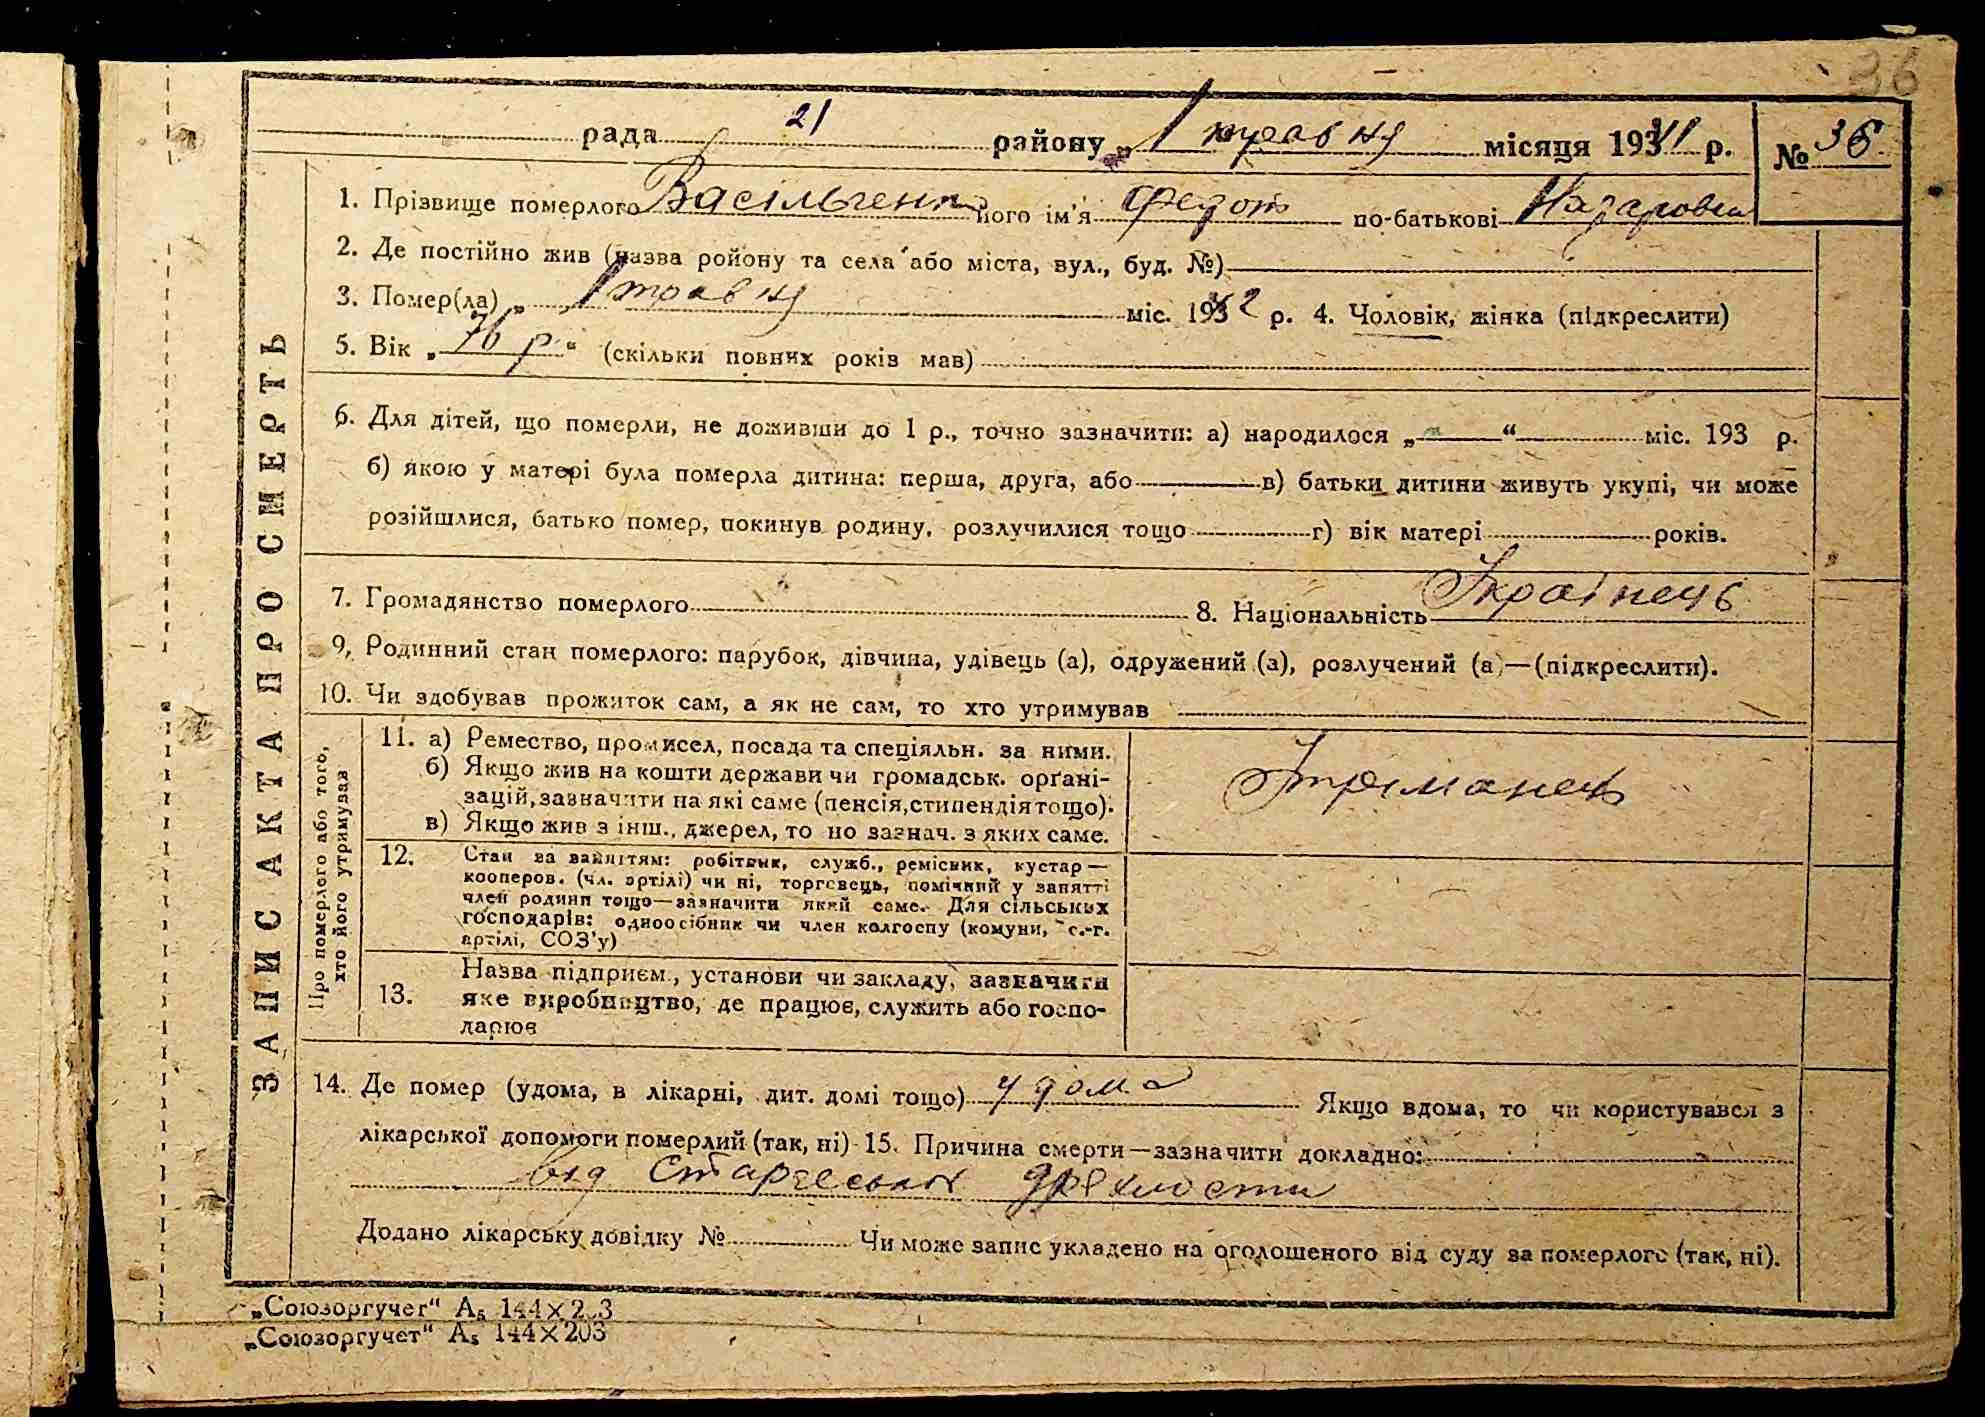 36
рада 21 району „1 травня місяця 1941 р. № 36
1. Прізвище померлого Васільченко його ім'я Федот по-батькові Назарович
2. Де постійно жив (назва ройону та села або міста, вул., буд. №)
3. Помер(ла) „ 1 травня міс. 1942 р. 4. Чоловік, жінка (підкреслити)
5. Вік „76 р.“ (скільки повних років мав)
6. Для дітей, що померли, не доживши до 1 р., точно зазначити: а) народилося „ “ міс. 193 р.
б) якою у матері була померла дитина: перша, друга, або в) батьки дитини живуть укупі, чи може
розійшлися, батько помер, покинув родину, розлучилися тощо г) вік матері років.
7. Громадянство померлого 8. Національність Українець
9. Родинний стан померлого: парубок, дівчина, удівець (а), одружений (а), розлучений (а)—(підкреслити).
10. Чи здобував прожиток сам, а як не сам, то хто утримував
ЗАПИС АКТА ПРО СМЕРТЬ
Про померлого або того,
хто його утримував
11. а) Ремество, промисел, посада та спеціяльн. за ними.
б) Якщо жив на кошти держави чи громадськ. орґані-
зацій, зазначити на які саме (пенсія, стипендія тощо).
в) Якщо жив з інш., джерел, то но зазнач. з яких саме.
Утріманець
12. Стан за заняттям: робітник, служб., ремісник, кустар—
кооперов. (чл. артілі) чи ні, торговець, помічний у занятті
член родини тощо—зазначити який саме. Для сільських
господарів: одноосібник чи член колгоспу (комуни, с.-г.
артілі, СОЗ'у)
13. Назва підприєм., установи чи закладу, зазначити
яке виробництво, де працює, служить або госпо-
дарює
14. Де помер (удома, в лікарні, дит. домі тощо) у дома Якщо вдома, то чи користувався з
лікарської допомоги померлий (так, ні) 15. Причина смерти—зазначити докладно:
від Старческой дряхлости
Додано лікарську довідку № Чи може запис укладено на оголошеного від суду за померлого (так, ні).
„Союзоргучет“ А₅ 144×203
„Союзоргучет“ А₅ 144×203